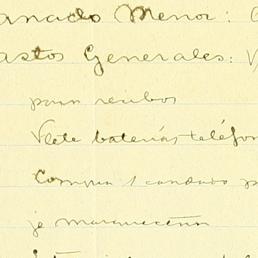 anado Menor:
astos Generales:
para recibos
Flete baterias teléfon
Compra 1 candado p
je